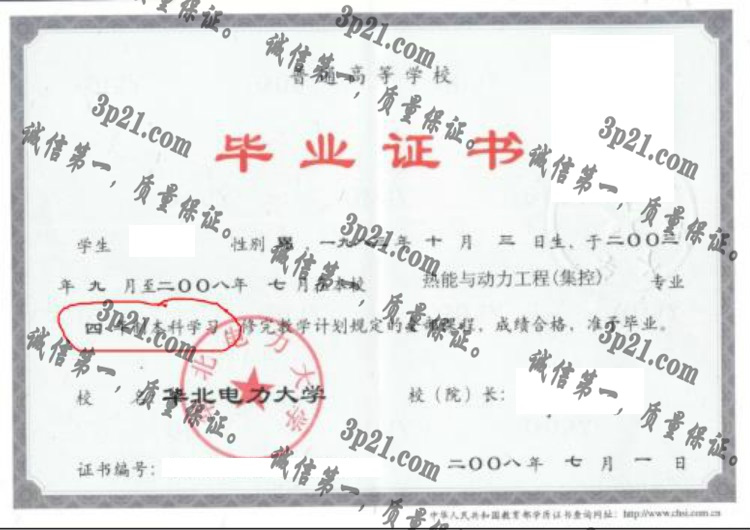 普通高等学校
毕业证书
学生 性别 一九八 年十月三日生，于二〇〇三
年九月至二〇〇八年七月在本校 热能与动力工程(集控) 专业
四年制本科学习，修完教学计划规定的全部课程，成绩合格，准予毕业。
校 名 华北电力大学 校（院）长：
证书编号： 二〇〇八年七月一日
中华人民共和国教育部学历证书查询网址：http://www.chsi.com.cn
华北电力大学
3p21.com
诚信第一，质量保证。
3p21.com
诚信第一，质量保证。
3p21.com
诚信第一，质量保证。
3p21.com
诚信第一，质量保证。
3p21.com
诚信第一，质量保证。
3p21.com
诚信第一，质量保证。
3p21.com
诚信第一，质量保证。
3p21.com
诚信第一，质量保证。